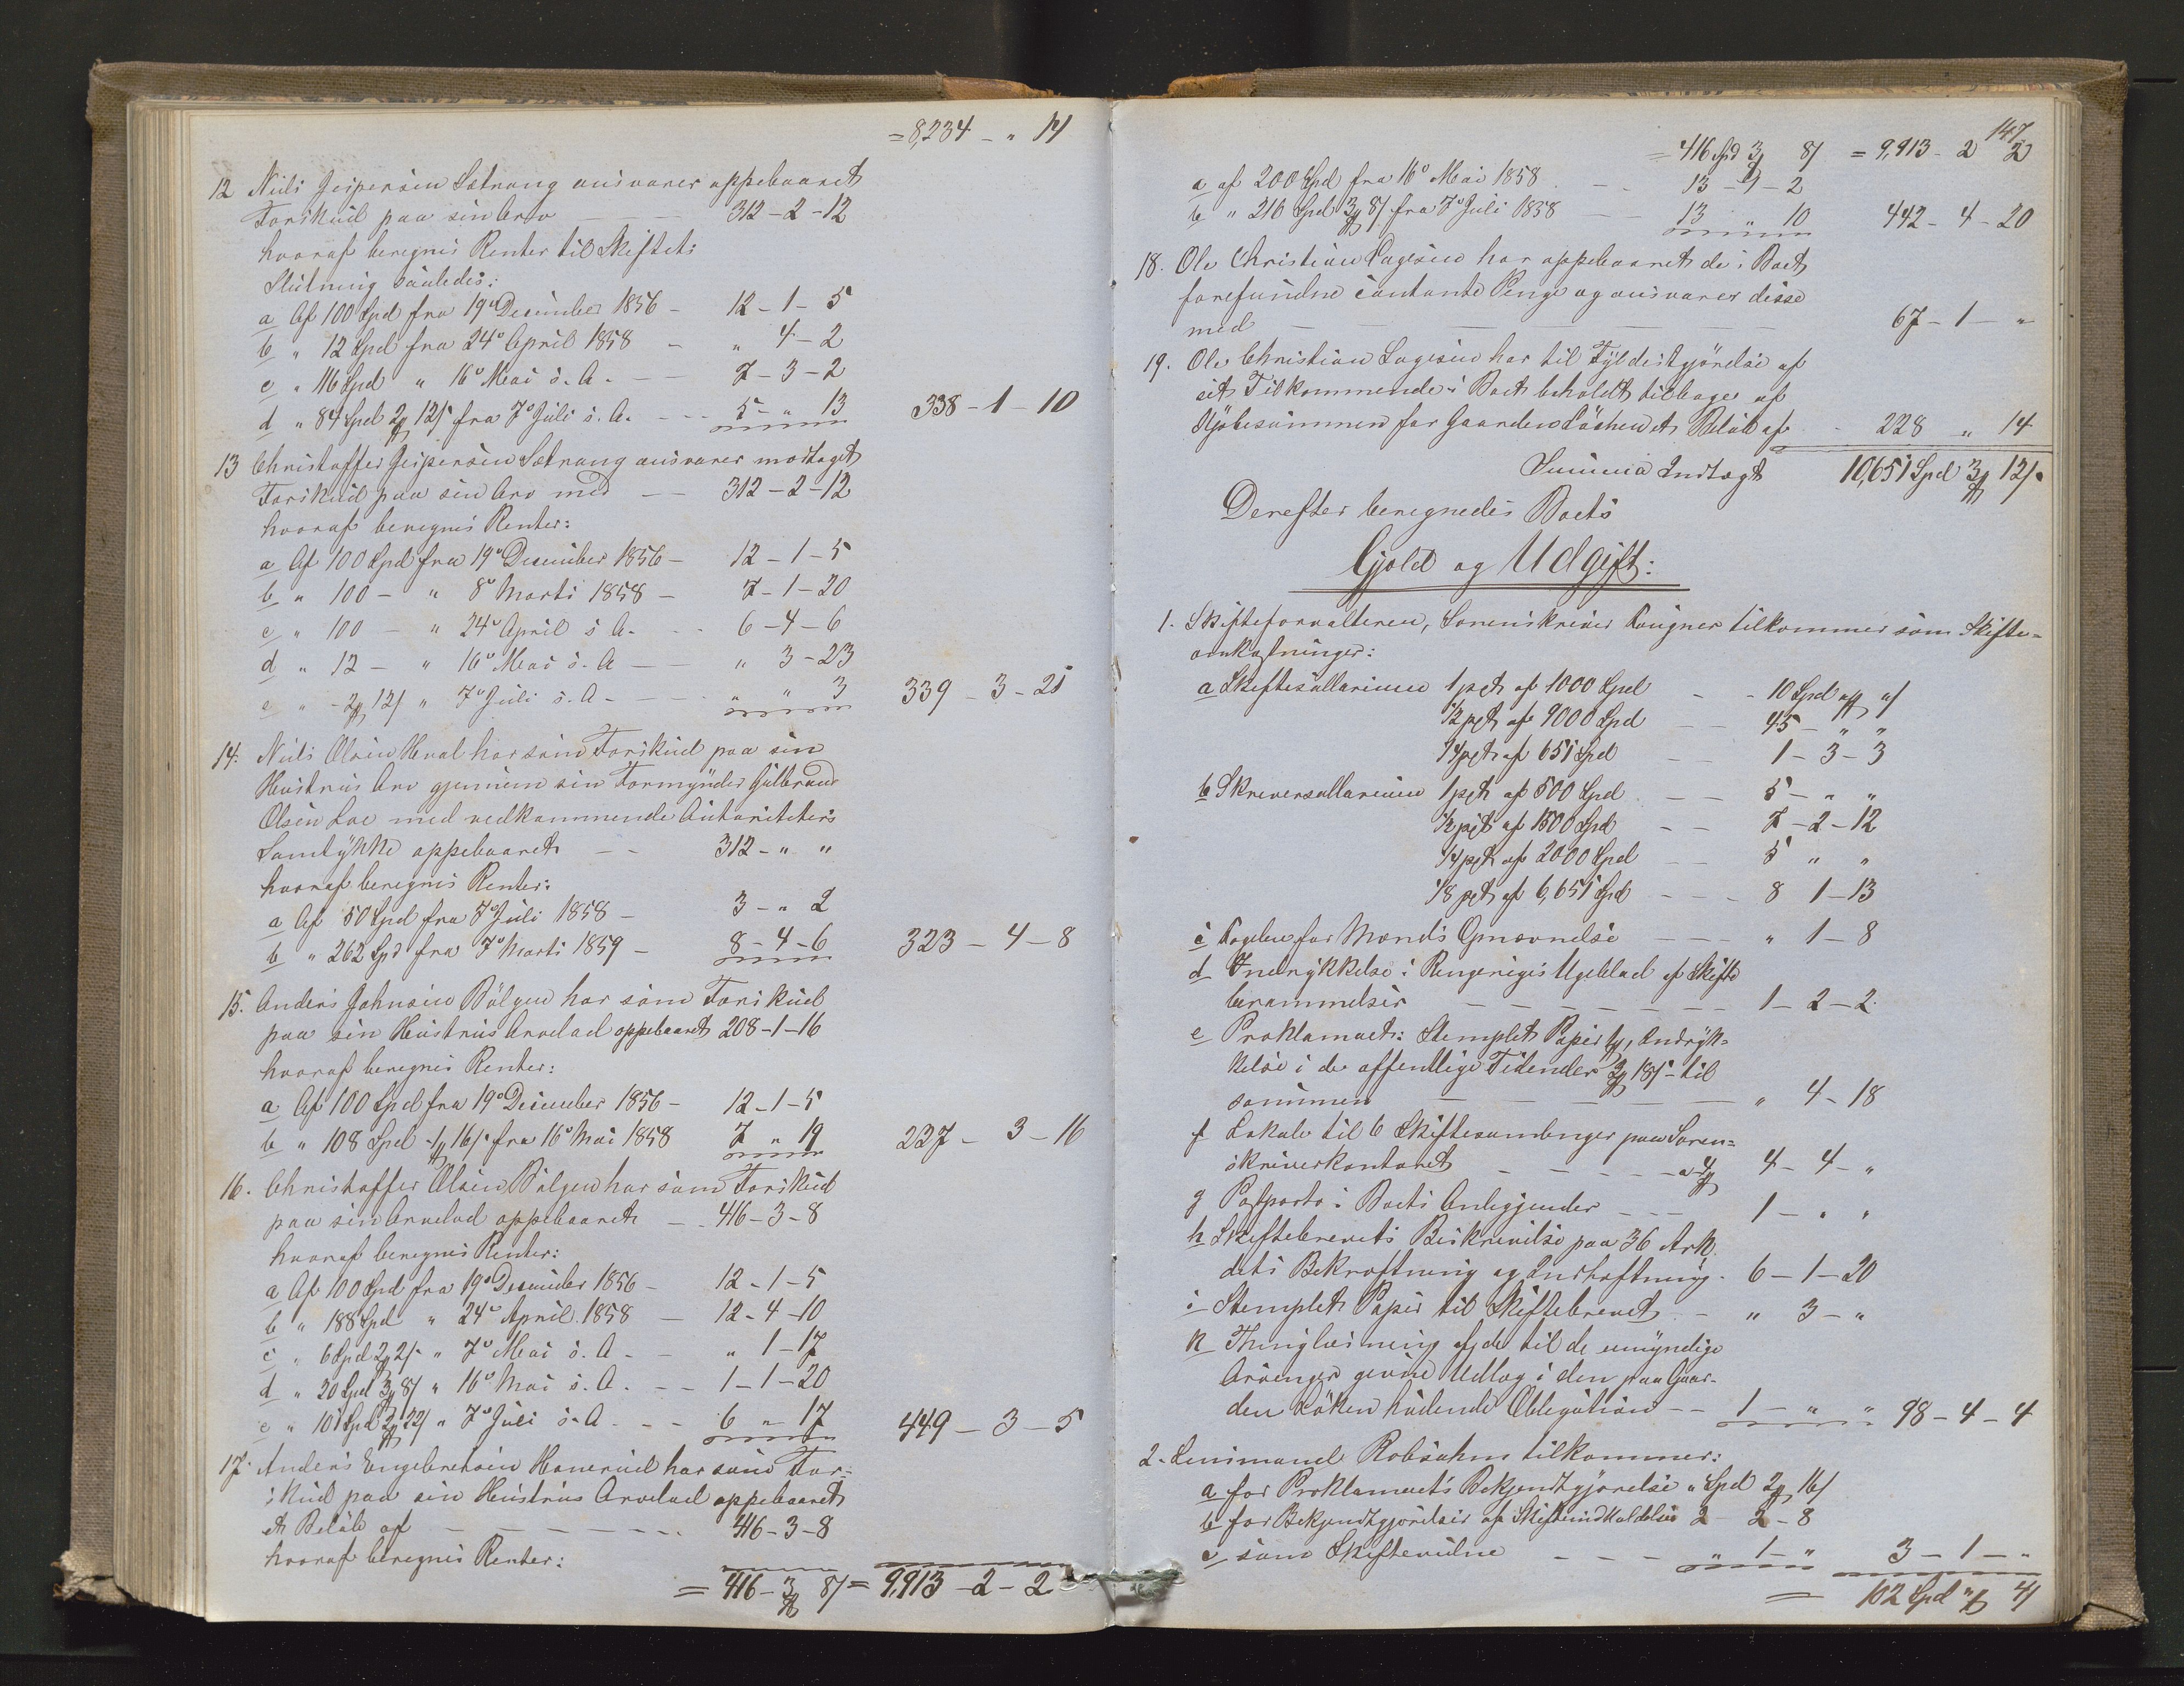 = 8,234 - " 14
12 Niels Jespersen Sætrang ansvarer oppebaaret
Forskud paa sin Arv — 312 - 2 - 12
hvoraf beregnes Renter til Skiftets
Slutning saaledes:
a Af 100 Spd fra 19de December 1856 - 12 - 1 - 5
b " 12 Spd fra 24de April 1858 - " 4 - 2
c " 116 Spd " 16de Mai s. A. - 7 - 3 - 2
d " 84 Spd 2# 12/ fra 7de Juli s. A. - 5 - " 13 338 - 1 - 10
13 Christoffer Jespersen Sætrang ansvarer modtaget
Forskud paa sin Arv med — 312 - 2 - 12
hvoraf beregnes Renter:
a Af 100 Spd fra 19de December 1856 - 12 - 1 - 5
b " 100 - " 8de Marts 1858 - 7 - 1 - 20
c " 100 - " 24de April s. A. - 6 - 4 - 6
d " 12 - " 16de Mai s. A — " 3 - 23
e " - 2# 12/ " 7de Juli s. A - " " 3 339 - 3 - 21
14. Niels Olsen Hval har som Forskud paa sin
Hustrues Arv gjennem sin Formynder Gulbrand
Olsen Loe med vedkommende Autoriteters
Samtykke oppebaaret — 312 - " "
hvoraf beregnes Renter:
a Af 50 Spd fra 7de Juli 1858 - 3 - " 2
b " 262 Spd fra 7de Marts 1859 - 8 - 4 - 6 323 - 4 - 8
15. Anders Johnsen Bölgen har som Forskud
paa sin Hustrues Arvelod oppebaaret 208 - 1 - 16
hvoraf beregnes Renter:
a Af 100 Spd fra 19de December 1856 - 12 - 1 - 5
b " 108 Spd 1# 16/ fra 16de Mai 1858 7 " 19 227 - 3 - 16
16. Christoffer Olsen Bölgen har som Forskud
paa sin Arvelod oppebaaret — 416 - 3 - 8
hvoraf beregnes Renter:
a Af 100 Spd fra 19de December 1856 - 12 - 1 - 5
b " 188 Spd " 24de April 1858 - 12 - 4 - 10
c " 6 Spd 2# 2/ " 7de Mai s. A - " 1 - 17
d " 20 Spd 3# 8/ " 16de Mai s. A. - 1 - 1 - 20
e " 101 Spd 2# 22/ " 7de Juli s. A - 6 " 17 449 - 3 - 5
17. Anders Engebretsen Honerud har som For-
skud paa sin Hustrues Arvelod oppebaaret
et Belöb af — 416 - 3 - 8
hvoraf beregnes Renter:
= 416 - 3# 8/ = 9,913 - 2 - 2
147
= 416 Spd 3# 8/ = 9,913 - 2 2
a af 200 Spd fra 16de Mai 1858 - 13 - 4 - 2
b " 216 Spd 3# 8/ fra 7de Juli 1858 - 13 " 10 442 - 4 - 20
18. Ole Christian Lagesen har oppebaaret de i Boet
forefundne contante Penge og ansvarer disse
med — 67 - 1 - "
19. Ole Christian Lagesen har til Fyldestgjörelse af
sit Tilkommende i Boet beholdt tilbage af
Kjöbesummen for Gaarden Löken et Belöb af - 228 " 14
Summa Indtægt 10,651 Spd 3# 12/
Derefter beregnedes Boets
Gjæld og Udgift:
1. Skifteforvalteren, Sorenskriver tilkommer som Skifte-
omkostninger:
a Skiftesallarium 1 pct af 1000 Spd - 10 Spd "# "/
1/2 pct af 9000 Spd — 45 - " "
1/4 pct af 651 Spd — 1 - 3 - 3
b Skriversallarium 1 pct af 500 Spd — 5 - " "
1/2 pct af 1500 Spd — 7 - 2 - 12
1/4 pct af 2000 Spd — 5 " "
1/8 pct af 6,651 Spd — 8 1 - 13
c for Mænds Opnævnelse — " 1 - 8
d Indrykkelse i Ringeriges Ugeblad af Skifte
berammelser — 1 - 2 - 2
e Proklamaet: Stemplet Papir 1#, Indryk-
kelse i de offentlige Tidender 3# 18/ - til
sammen — " 4 - 18
f Lokale til 6 Skiftesamlinger paa Soren-
skriverkontoret — a 4# 4 - 4 - "
g Postporto i Boets Anliggender — 1 - " "
h Skiftebrevets Beskrivelse paa 36 Ark.
dets Bekræftning og Indhæftning - 6 - 1 - 20
i Stemplet Papir til Skiftebrevet - " 3 - "
k Thinglæsning af de til de umyndige
Arvinger givne Udlæg i den paa Gaar-
den Löken hæftende Obligation — 1 - " " 98 - 4 - 4
2. Lensmand Robsahm tilkommer:
a for Proklamaets Bekjendtgjörelse " Spd 2# 16/
b for Bekjendtgjörelser af Skifteindkaldelser 2 - 2 - 8
c som Skiftevidne — " 1 - " 3 - 1 - "
= 102 Spd "# 4/